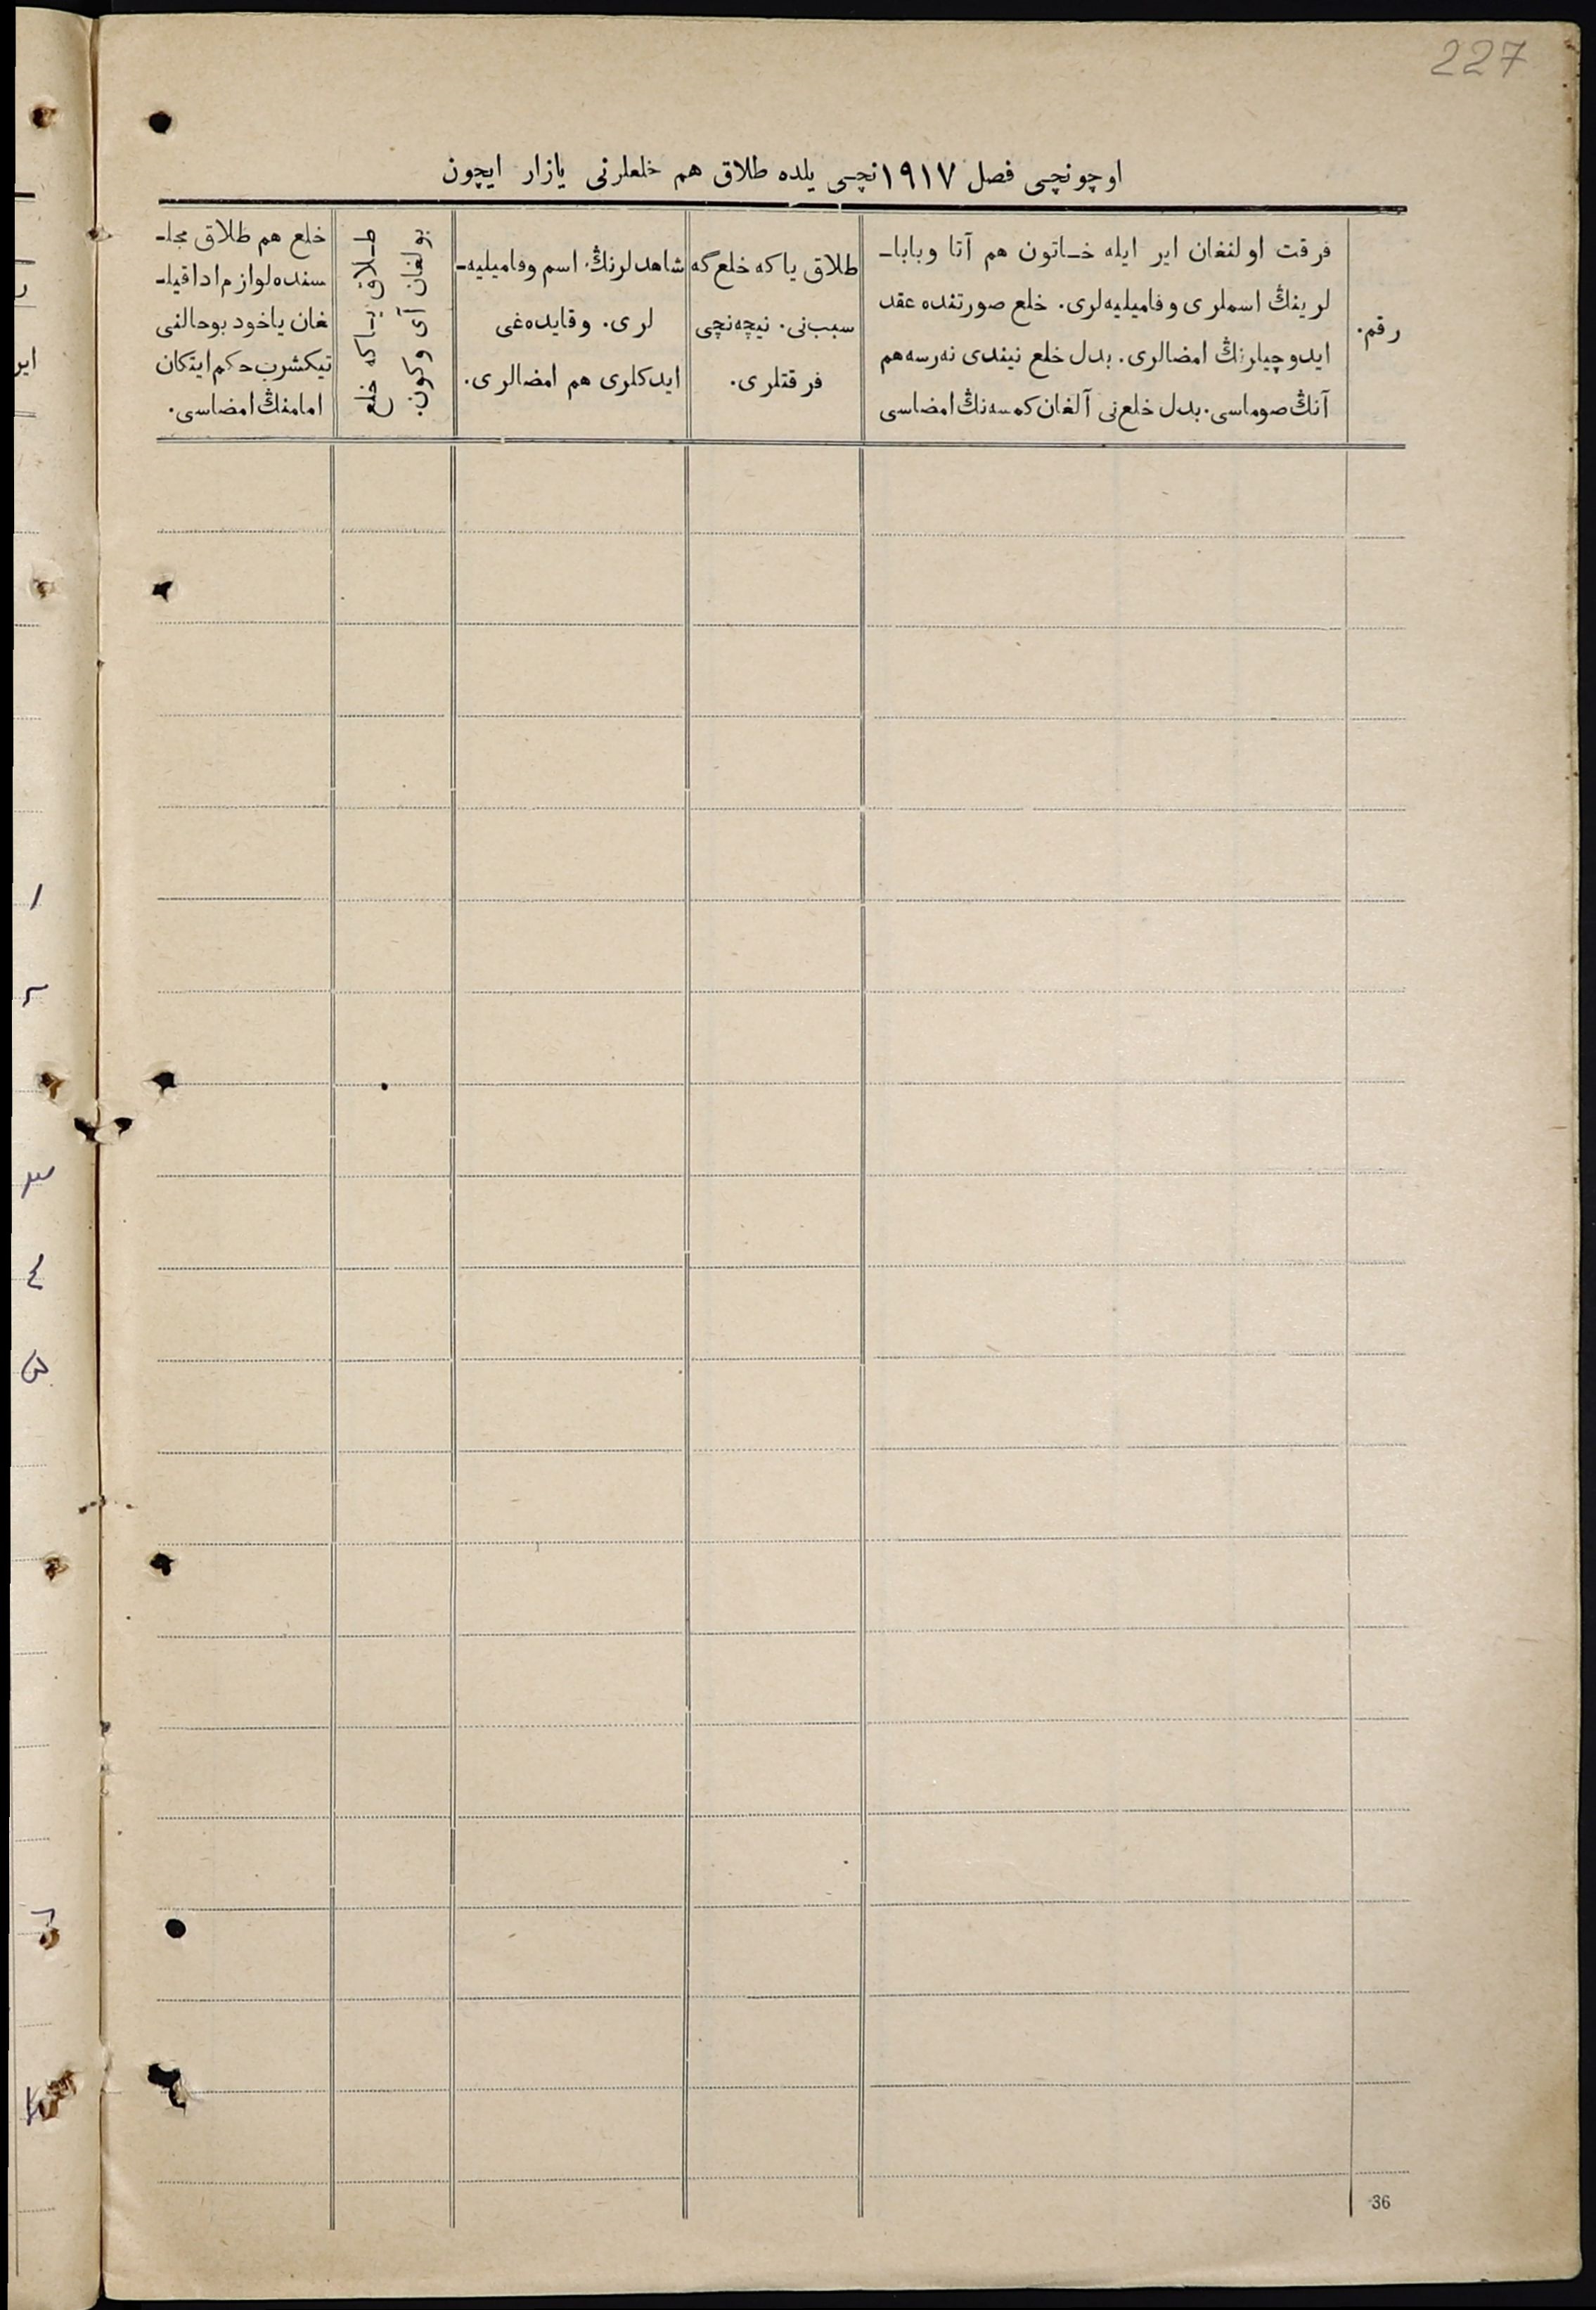 227
اوچونچی فصل ۱۹۱۷نچی یلده طلاق هم خلعلرنی یازار ایچون
رقم.
فرقت اولنغان ایر ایله خـاتون هم آتا وبابا-
لرینڭ اسملری وفامیلیه‌لری. خلع صورتنده عقد
ایدوچیلرنڭ امضالری. بدل خلع نیندی نه‌رسه هم
آنڭ صوماسی. بدل خلع‌نی آلغان کمسه‌نڭ امضاسی
طلاق یا که خلع گه
سبب‌نی. نیچه‌نچی
فرقتلری.
شاهدلرنڭ اسم وفامیلیه-
لری. وقایده‌غی
ایدکلری هم امضالری.
طـلاق یـاکه خلع
بولغان آی وکون.
خلع هم طلاق مجلـ
سنده لوازم ادا قیلـ
غان یاخود بوحالنی
تیکشرب حکم ایتکان
امامنڭ امضاسی.
ایر
۱
۲
۳
٤
۵
36